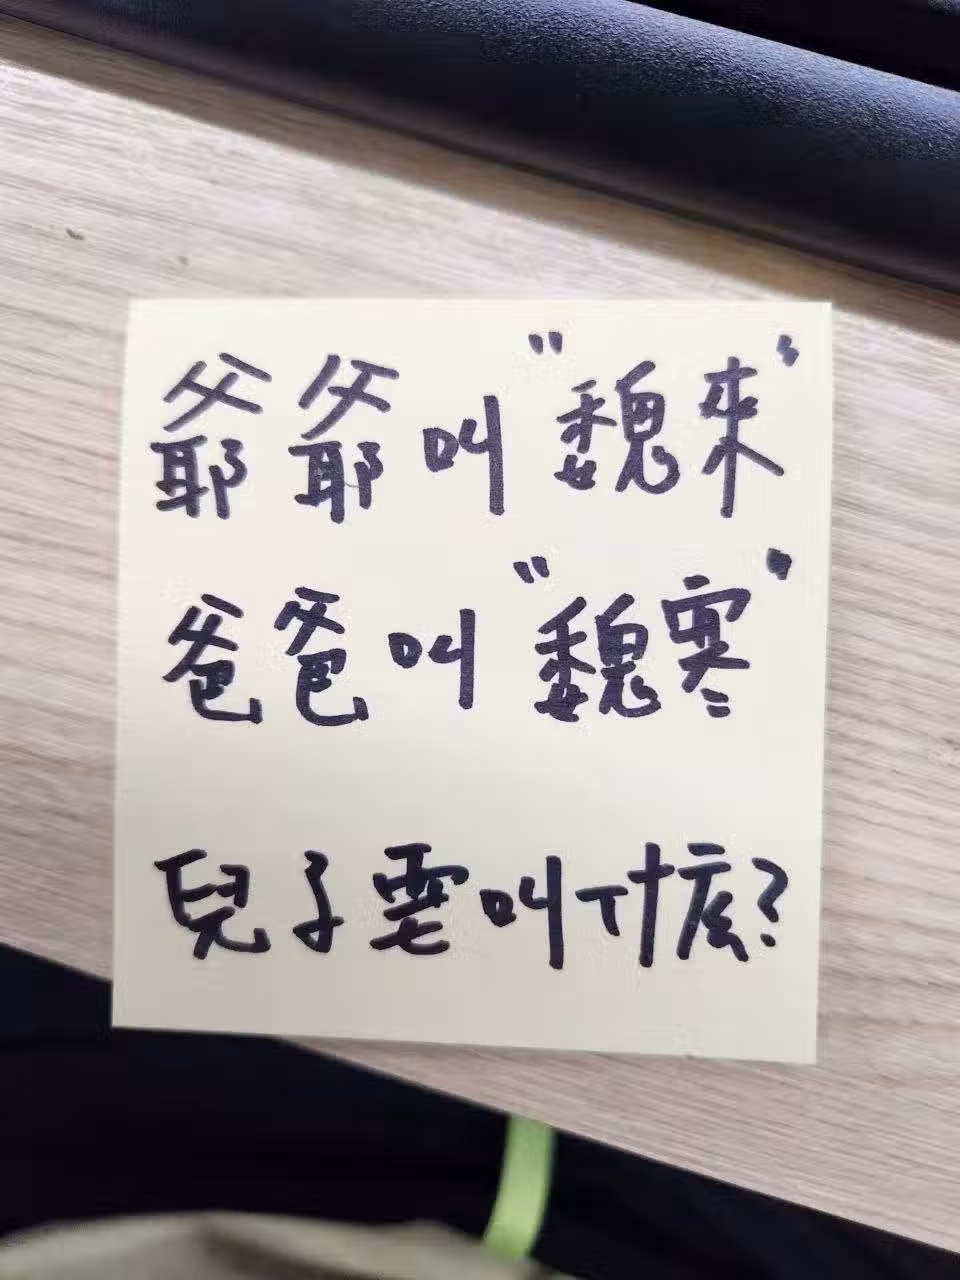 爺爺叫"魏來"
爸爸叫"魏寒"
兒子要叫什麼?